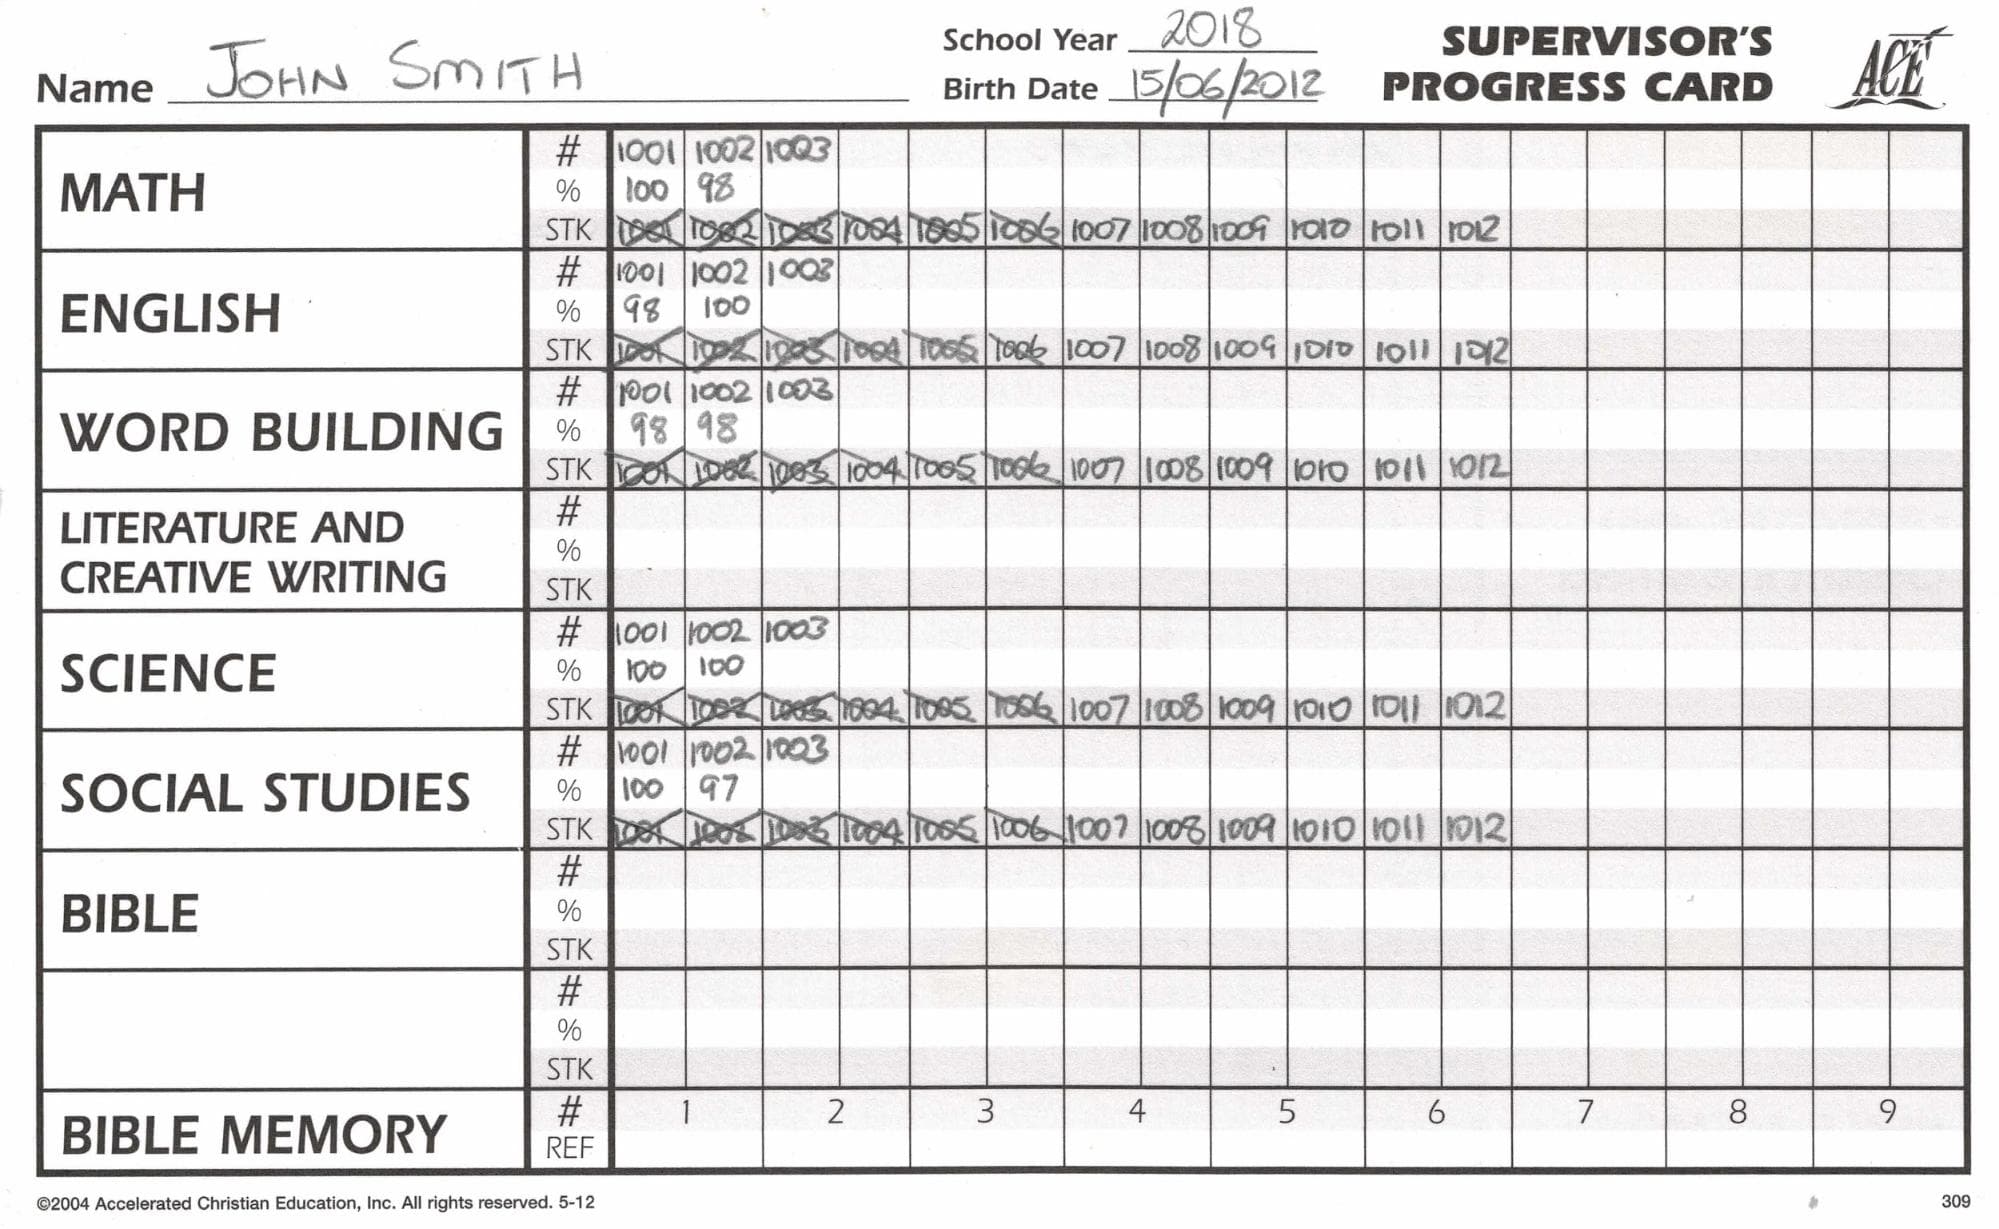 Name JOHN SMITH School Year 2018 SUPERVISOR'S
Birth Date 15/06/2012 PROGRESS CARD ACE
MATH # 1001 1002 1003
% 100 98
STK 1001 1002 1003 1004 1005 1006 1007 1008 1009 1010 1011 1012
ENGLISH # 1001 1002 1003
% 98 100
STK 1001 1002 1003 1004 1005 1006 1007 1008 1009 1010 1011 1012
WORD BUILDING # 1001 1002 1003
% 98 98
STK 1001 1002 1003 1004 1005 1006 1007 1008 1009 1010 1011 1012
LITERATURE AND #
CREATIVE WRITING %
STK
SCIENCE # 1001 1002 1003
% 100 100
STK 1001 1002 1003 1004 1005 1006 1007 1008 1009 1010 1011 1012
SOCIAL STUDIES # 1001 1002 1003
% 100 97
STK 1001 1002 1003 1004 1005 1006 1007 1008 1009 1010 1011 1012
BIBLE #
%
STK
#
%
STK
BIBLE MEMORY # 1 2 3 4 5 6 7 8 9
REF
©2004 Accelerated Christian Education, Inc. All rights reserved. 5-12 309